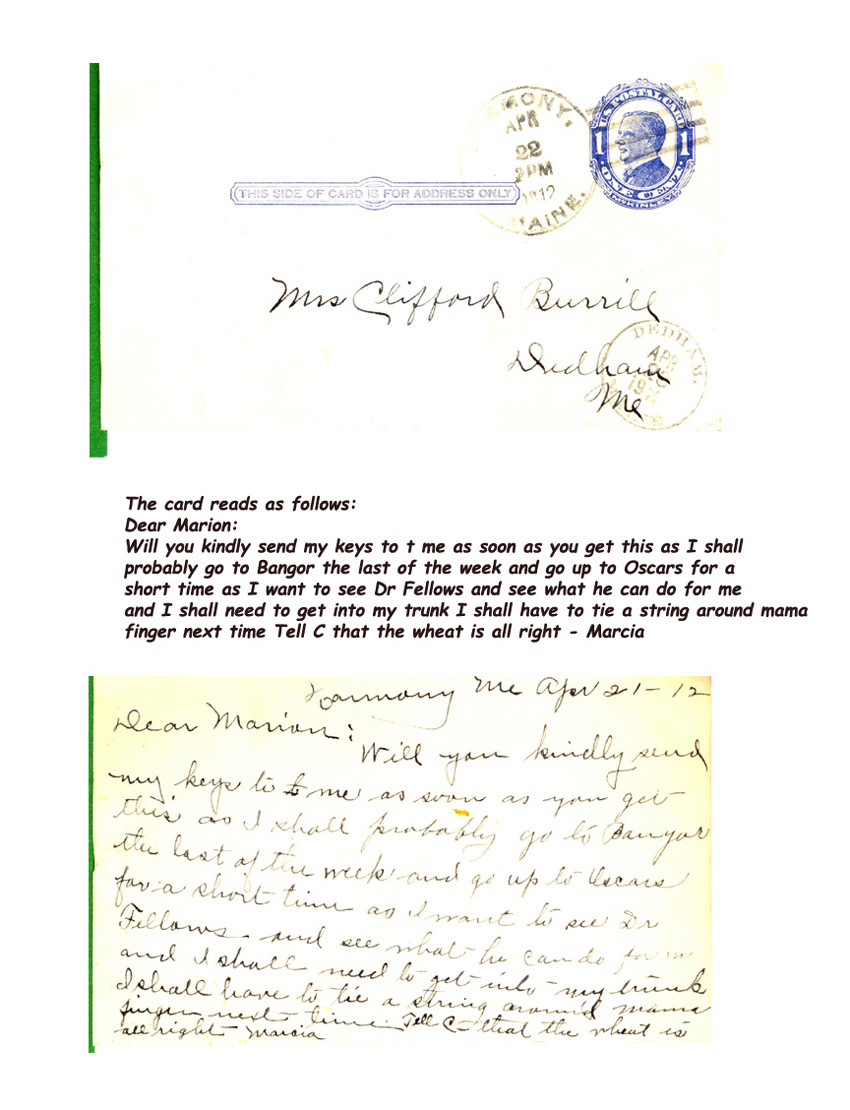 U.S. POSTAL CARD
1 1
ONE CENT
McKINLEY
RMONY,
APR
22
2PM
1912
MAINE.
THIS SIDE OF CARD IS FOR ADDRESS ONLY
Mrs Clifford Burrill
Dedham
Me
DEDHAM.
APR
The card reads as follows:
Dear Marion:
Will you kindly send my keys to t me as soon as you get this as I shall
probably go to Bangor the last of the week and go up to Oscars for a
short time as I want to see Dr Fellows and see what he can do for me
and I shall need to get into my trunk I shall have to tie a string around mama
finger next time Tell C that the wheat is all right - Marcia
Harmony Me Apr 21-12
Dear Marion:
Will you kindly send
my keys to t me as soon as you get
this as I shall probably go to Bangor
the last of the week and go up to Oscars
for a short time as I want to see Dr
Fellows and see what he can do for me
and I shall need to get into my trunk
I shall have to tie a string around mama
finger next time. Tell C- that the wheat is
all right- Marcia